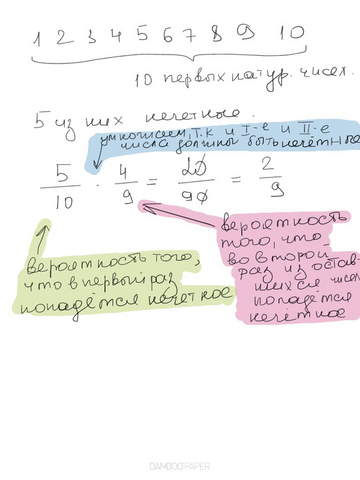 1 2 3 4 5 6 7 8 9 10
10 первых натур. чисел.
5 из них нечетные.
умножаем, т.к и I-е и II-е
числа должны быть нечётные
5/10 · 4/9 = 20/90 = 2/9
вероятность того,
что в первый раз
попадётся нечетное
вероятность
того, что
во второй
раз из остав-
шихся чисел
попадётся
нечётное
BAMBOO PAPER